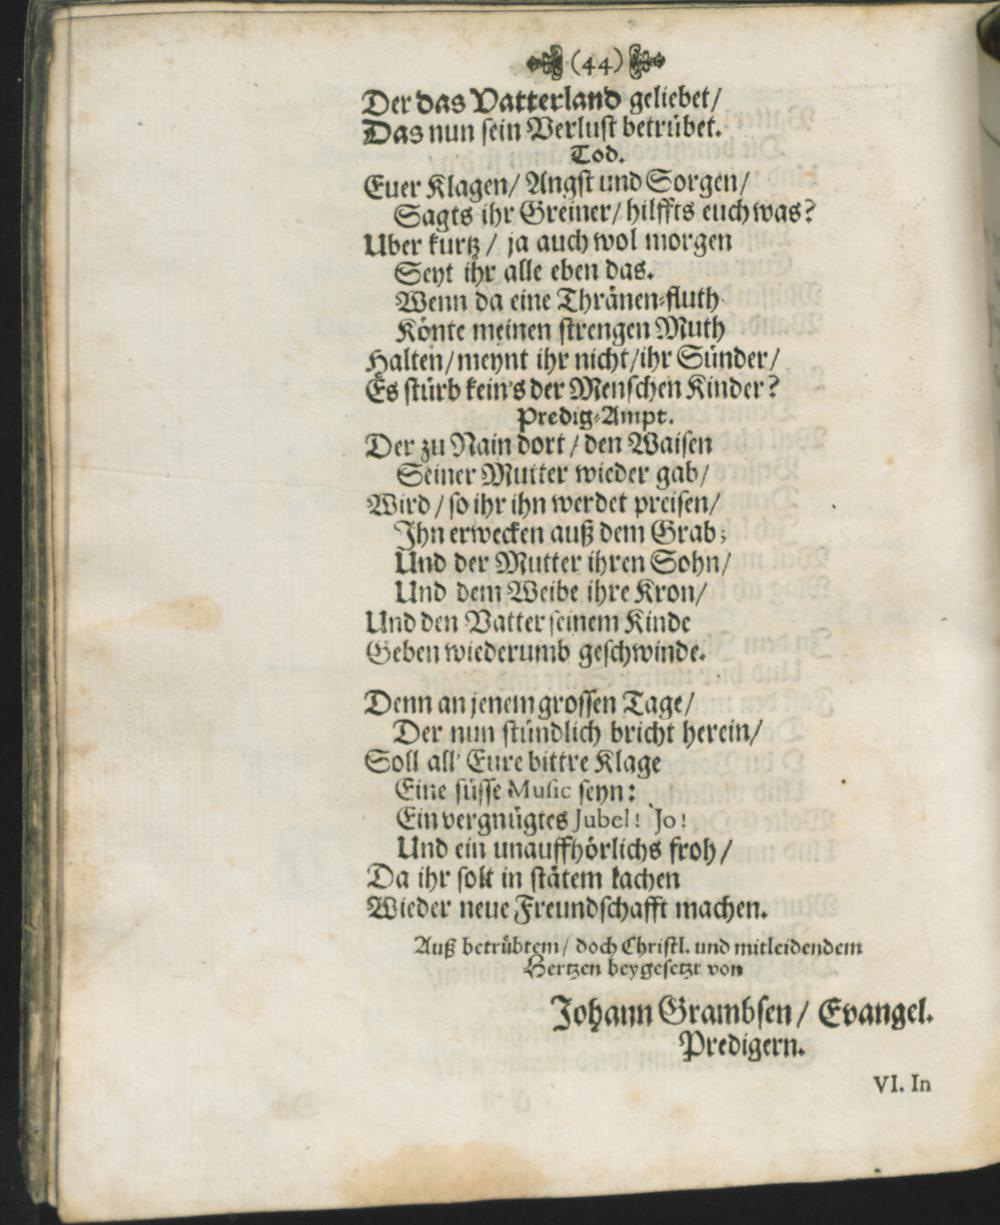 (44)
Der das Vatterland geliebet/
Das nun sein Verlust betrübet.
Tod.
Euer Klagen/ Angst und Sorgen/
Sagts ihr Greiner/ hilffts euch was?
Uber kurtz / ja auch wol morgen
Seyt ihr alle eben das.
Wenn da eine Thränen-fluth
Könte meinen strengen Muth
Halten/ meynt ihr nicht/ ihr Sünder/
Es stürb kein's der Menschen Kinder?
Predig-Ampt.
Der zu Nain dort / den Waisen
Seiner Mutter wieder gab/
Wird / so ihr ihn werdet preisen/
Ihn erwecken auß dem Grab;
Und der Mutter ihren Sohn/
Und dem Weibe ihre Kron/
Und den Vatter seinem Kinde
Geben wiederumb geschwinde.
Denn an jenem grossen Tage/
Der nun stündlich bricht herein/
Soll all' Eure bittre Klage
Eine süsse Music seyn:
Ein vergnügtes Jubel! Jo!
Und ein unauffhörlichs froh/
Da ihr solt in stätem Lachen
Wieder neue Freundschafft machen.
Auß betrübtem/ doch Christl. und mitleidendem
Hertzen beygesetzt von
Johann Grambsen/ Evangel.
Predigern.
VI. In